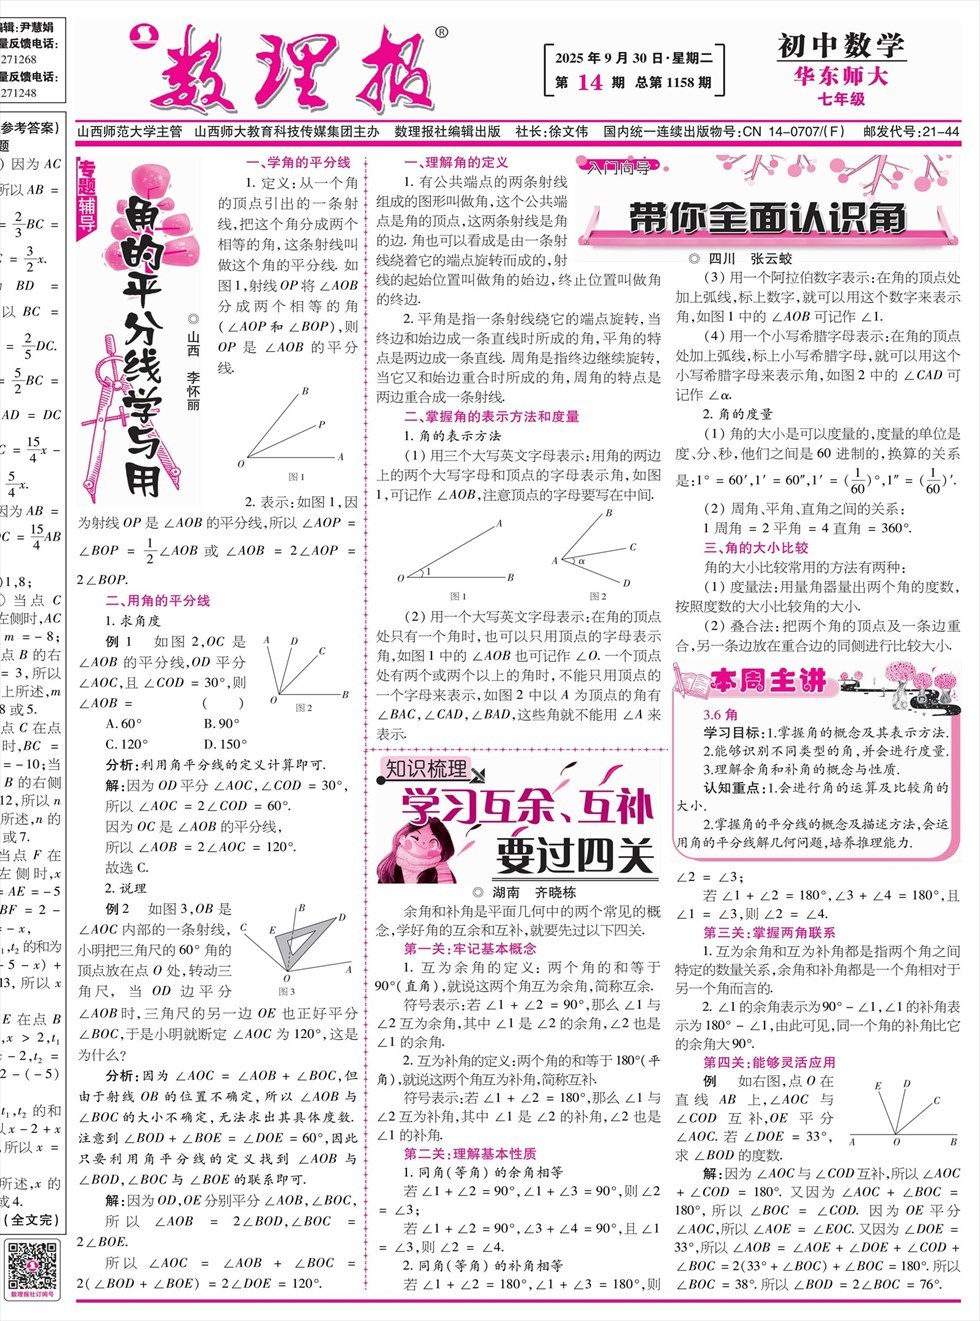 编辑:尹慧娟
质量反馈电话:
271268
质量反馈电话:
271248
数理报®
2025年9月30日·星期二
第14期 总第1158期
初中数学
华东师大
七年级
山西师范大学主管 山西师大教育科技传媒集团主办 数理报社编辑出版 社长:徐文伟 国内统一连续出版物号:CN 14-0707/(F) 邮发代号:21-44
专题辅导
角的平分线学与用
◎山西 李怀丽
一、学角的平分线
1. 定义:从一个角
的顶点引出的一条射
线,把这个角分成两个
相等的角,这条射线叫
做这个角的平分线. 如
图1,射线OP将∠AOB
分成两个相等的角
(∠AOP和∠BOP),则
OP是∠AOB的平分
线.
B
P
O
A
图1
2. 表示:如图1,因
为射线OP是∠AOB的平分线,所以∠AOP =
∠BOP = 1/2∠AOB或∠AOB = 2∠AOP =
2∠BOP.
二、用角的平分线
1. 求角度
例1 如图2,OC是
∠AOB的平分线,OD平分
∠AOC,且∠COD = 30°,则
∠AOB = ( )
A D
C
O
B
图2
A. 60° B. 90°
C. 120° D. 150°
分析:利用角平分线的定义计算即可.
解:因为OD平分∠AOC,∠COD = 30°,
所以∠AOC = 2∠COD = 60°.
因为OC是∠AOB的平分线,
所以∠AOB = 2∠AOC = 120°.
故选C.
2. 说理
例2 如图3,OB是
∠AOC内部的一条射线,
小明把三角尺的60°角的
顶点放在点O处,转动三
角尺,当OD边平分
C
E
B
D
A
O
图3
∠AOB时,三角尺的另一边OE也正好平分
∠BOC,于是小明就断定∠AOC为120°,这是
为什么?
分析:因为∠AOC = ∠AOB + ∠BOC,但
由于射线OB的位置不确定,所以∠AOB与
∠BOC的大小不确定,无法求出其具体度数.
注意到∠BOD + ∠BOE = ∠DOE = 60°,因此
只要利用角平分线的定义找到∠AOB与
∠BOD,∠BOC与∠BOE的联系即可.
解:因为OD,OE分别平分∠AOB,∠BOC,
所以∠AOB = 2∠BOD,∠BOC =
2∠BOE.
所以∠AOC = ∠AOB + ∠BOC =
2(∠BOD + ∠BOE) = 2∠DOE = 120°.
入门向导
带你全面认识角
◎ 四川 张云蛟
一、理解角的定义
1. 有公共端点的两条射线
组成的图形叫做角,这个公共端
点是角的顶点,这两条射线是角
的边. 角也可以看成是由一条射
线绕着它的端点旋转而成的,射
线的起始位置叫做角的始边,终止位置叫做角
的终边.
2. 平角是指一条射线绕它的端点旋转,当
终边和始边成一条直线时所成的角,平角的特
点是两边成一条直线. 周角是指终边继续旋转,
当它又和始边重合时所成的角,周角的特点是
两边重合成一条射线.
二、掌握角的表示方法和度量
1. 角的表示方法
(1) 用三个大写英文字母表示:用角的两边
上的两个大写字母和顶点的字母表示角,如图
1,可记作∠AOB,注意顶点的字母要写在中间.
A
O
1
B
图1
B
C
A
α
D
图2
(2) 用一个大写英文字母表示:在角的顶点
处只有一个角时,也可以只用顶点的字母表示
角,如图1中的∠AOB也可记作∠O. 一个顶点
处有两个或两个以上的角时,不能只用顶点的
一个字母来表示,如图2中以A为顶点的角有
∠BAC,∠CAD,∠BAD,这些角就不能用∠A来
表示.
(3) 用一个阿拉伯数字表示:在角的顶点处
加上弧线,标上数字,就可以用这个数字来表示
角,如图1中的∠AOB可记作∠1.
(4) 用一个小写希腊字母表示:在角的顶点
处加上弧线,标上小写希腊字母,就可以用这个
小写希腊字母来表示角,如图2中的∠CAD可
记作∠α.
2. 角的度量
(1) 角的大小是可以度量的,度量的单位是
度、分、秒,他们之间是60进制的,换算的关系
是:1° = 60′,1′ = 60″,1′ = (1/60)°,1″ = (1/60)′.
(2) 周角、平角、直角之间的关系:
1周角 = 2平角 = 4直角 = 360°.
三、角的大小比较
角的大小比较常用的方法有两种:
(1) 度量法:用量角器量出两个角的度数,
按照度数的大小比较角的大小.
(2) 叠合法:把两个角的顶点及一条边重
合,另一条边放在重合边的同侧进行比较大小.
本周主讲
3.6 角
学习目标:1.掌握角的概念及其表示方法.
2.能够识别不同类型的角,并会进行度量.
3.理解余角和补角的概念与性质.
认知重点:1.会进行角的运算及比较角的
大小.
2.掌握角的平分线的概念及描述方法,会运
用角的平分线解几何问题,培养推理能力.
知识梳理
学习互余、互补
要过四关
◎ 湖南 齐晓栋
余角和补角是平面几何中的两个常见的概
念,学好角的互余和互补,就要先过以下四关.
第一关:牢记基本概念
1. 互为余角的定义: 两个角的和等于
90°(直角),就说这两个角互为余角,简称互余.
符号表示:若∠1 + ∠2 = 90°,那么∠1与
∠2互为余角,其中∠1是∠2的余角,∠2也是
∠1的余角.
2. 互为补角的定义:两个角的和等于180°(平
角),就说这两个角互为补角,简称互补.
符号表示:若∠1 + ∠2 = 180°,那么∠1与
∠2互为补角,其中∠1是∠2的补角,∠2也是
∠1的补角.
第二关:理解基本性质
1. 同角(等角)的余角相等
若∠1 + ∠2 = 90°,∠1 + ∠3 = 90°,则∠2
= ∠3;
若∠1 + ∠2 = 90°,∠3 + ∠4 = 90°,且∠1
= ∠3,则∠2 = ∠4.
2. 同角(等角)的补角相等
若∠1 + ∠2 = 180°,∠1 + ∠3 = 180°,则
∠2 = ∠3;
若∠1 + ∠2 = 180°,∠3 + ∠4 = 180°,且
∠1 = ∠3,则∠2 = ∠4.
第三关:掌握两角联系
1. 互为余角和互为补角都是指两个角之间
特定的数量关系,余角和补角都是一个角相对于
另一个角而言的.
2. ∠1的余角表示为90° - ∠1,∠1的补角表
示为180° - ∠1,由此可见,同一个角的补角比它
的余角大90°.
第四关:能够灵活应用
例 如右图,点O在
直线AB上,∠AOC与
∠COD互补,OE平分
∠AOC. 若∠DOE = 33°,
求∠BOD的度数.
E D
C
A O B
解:因为∠AOC与∠COD互补,所以∠AOC
+ ∠COD = 180°. 又因为∠AOC + ∠BOC =
180°,所以∠BOC = ∠COD. 因为OE平分
∠AOC,所以∠AOE = ∠EOC. 又因为∠DOE =
33°,所以∠AOB = ∠AOE + ∠DOE + ∠COD +
∠BOC = 2(33° + ∠BOC) + ∠BOC = 180°. 所以
∠BOC = 38°. 所以∠BOD = 2∠BOC = 76°.
(全文完)
数理报社订阅号